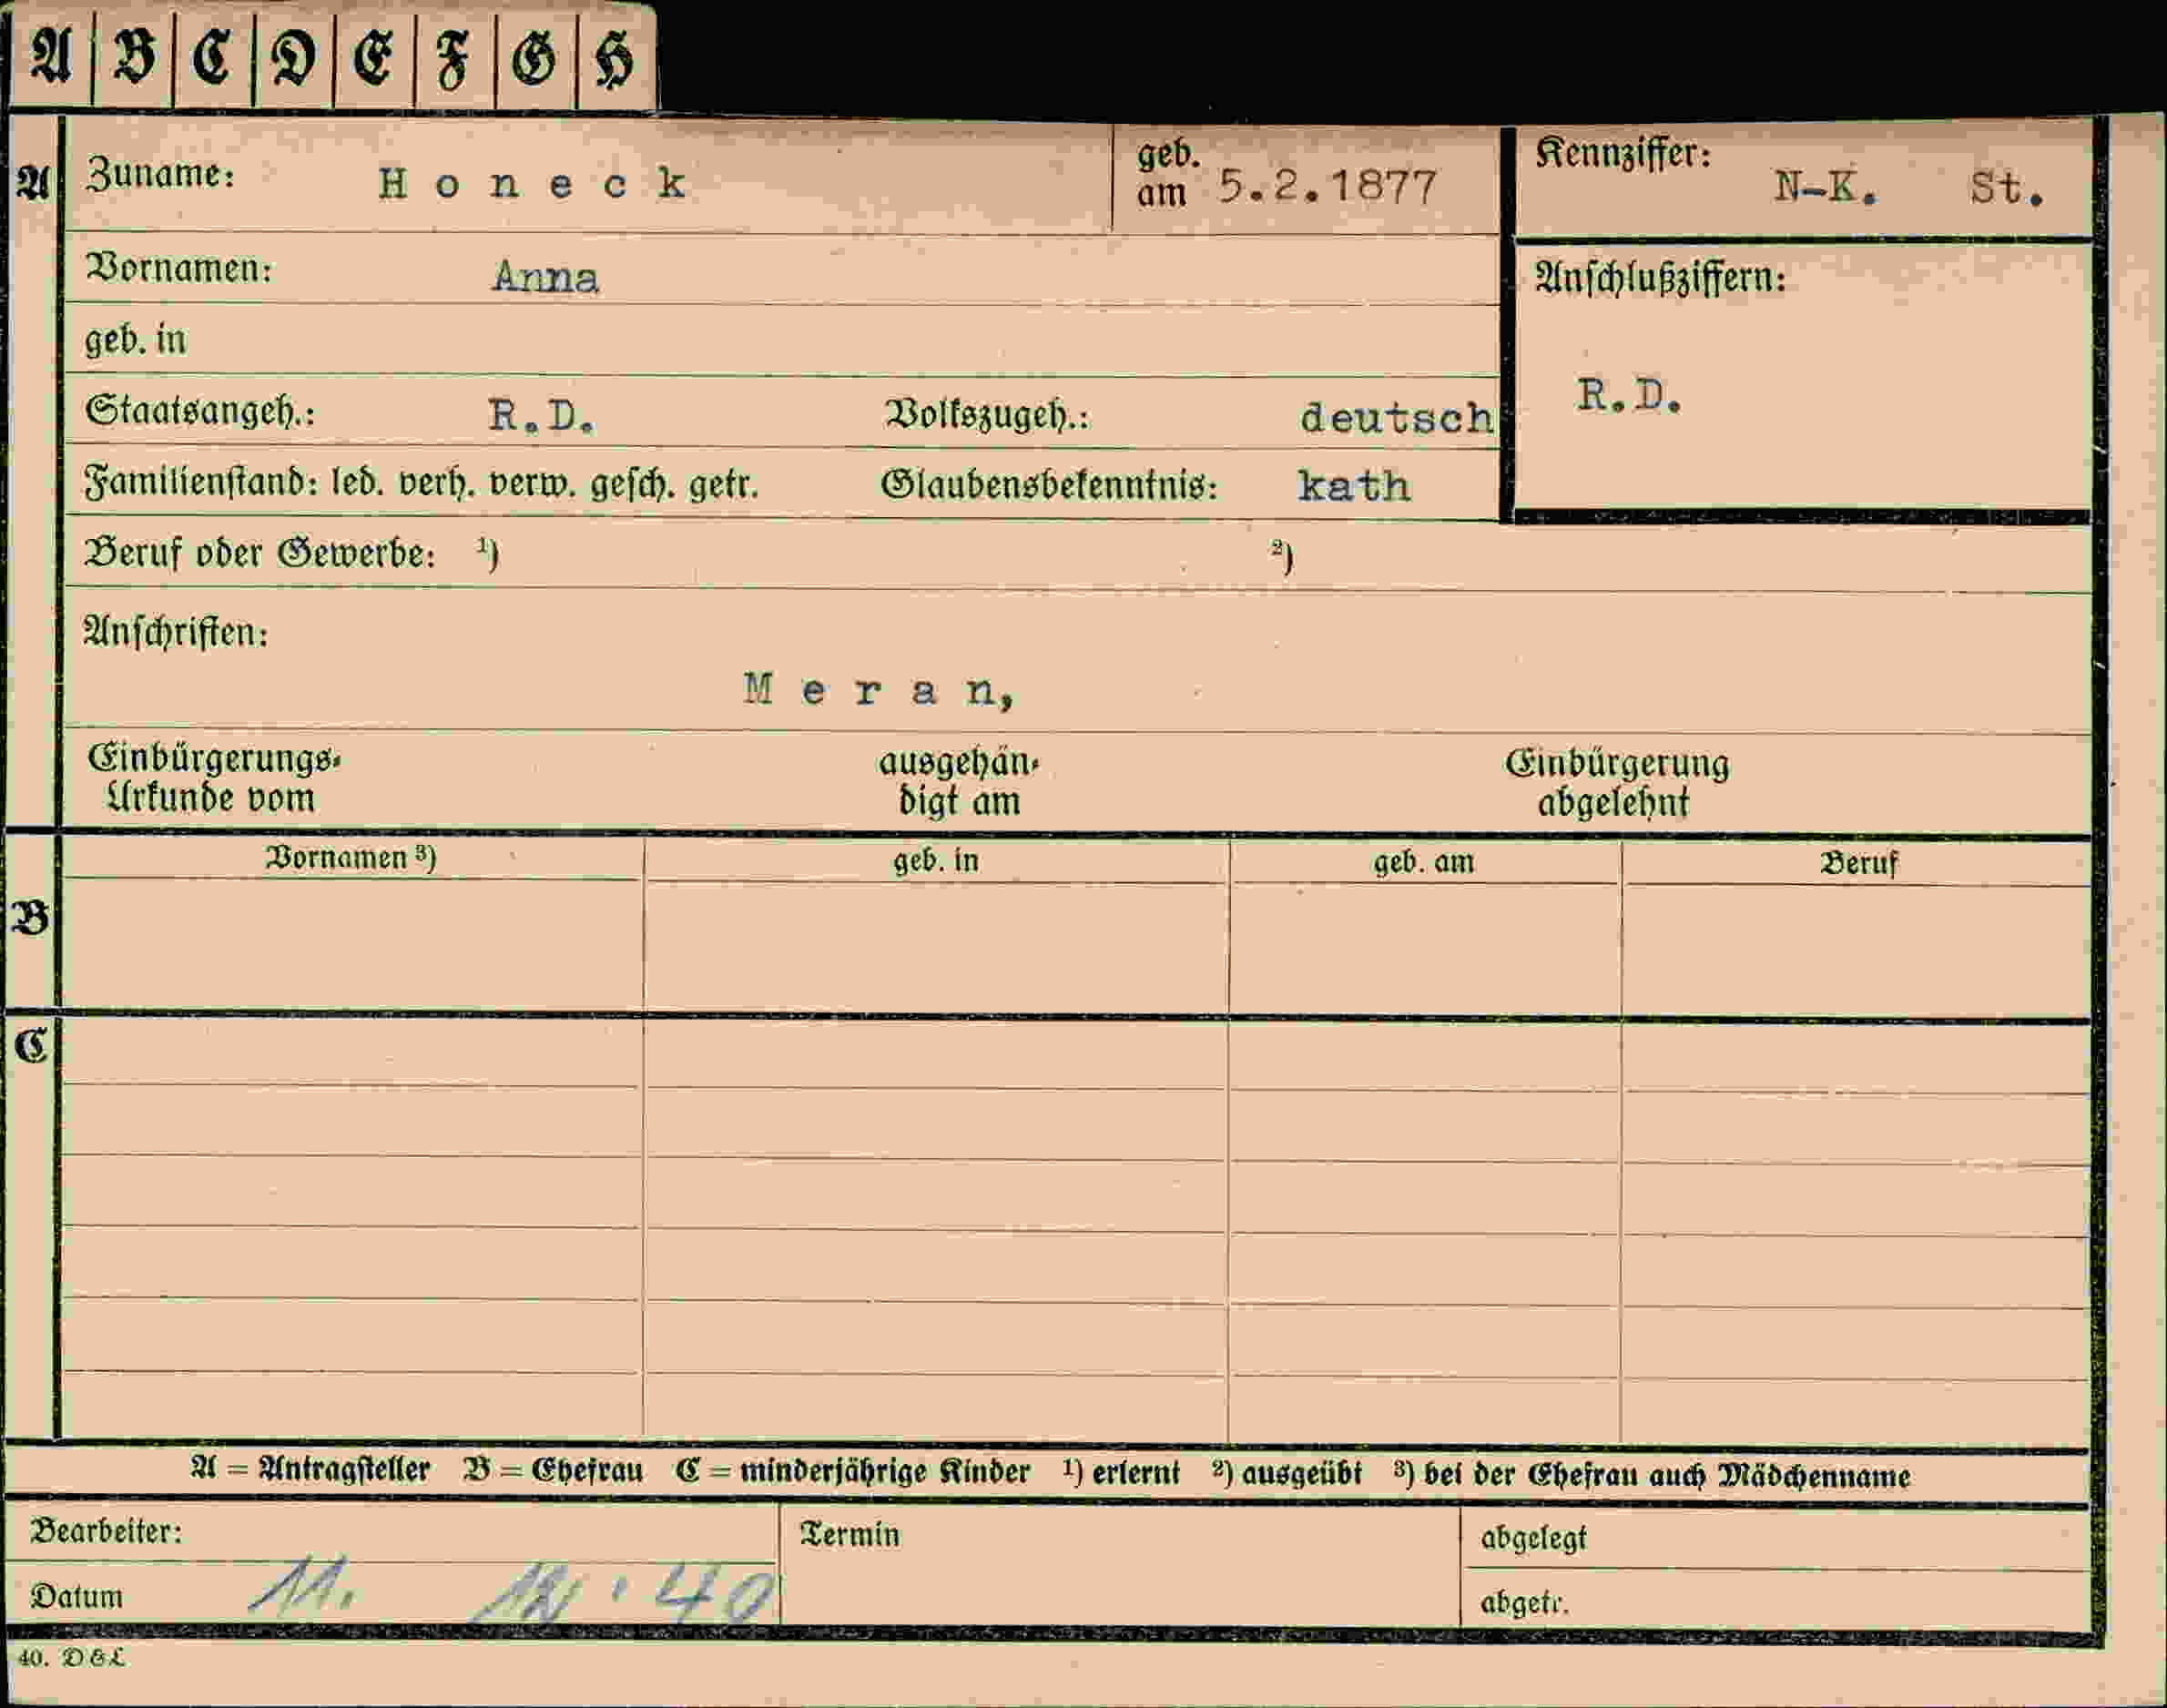 A B C D E F G H
A Zuname: Honeck geb. am 5.2.1877 Kennziffer: N-K. St.
Vornamen: Anna Anschlußziffern:
geb. in
Staatsangeh.: R.D. Volkszugeh.: deutsch R.D.
Familienstand: led. verh. verw. gesch. getr. Glaubensbekenntnis: kath
Beruf oder Gewerbe: ¹) ²)
Anschriften:
Meran,
Einbürgerungs- ausgehän- Einbürgerung
Urkunde vom digt am abgelehnt
Vornamen ³) geb. in geb. am Beruf
B
C
A = Antragsteller B = Ehefrau C = minderjährige Kinder ¹) erlernt ²) ausgeübt ³) bei der Ehefrau auch Mädchenname
Bearbeiter: Termin abgelegt
Datum 11. 40 abgetr.
40. D & L